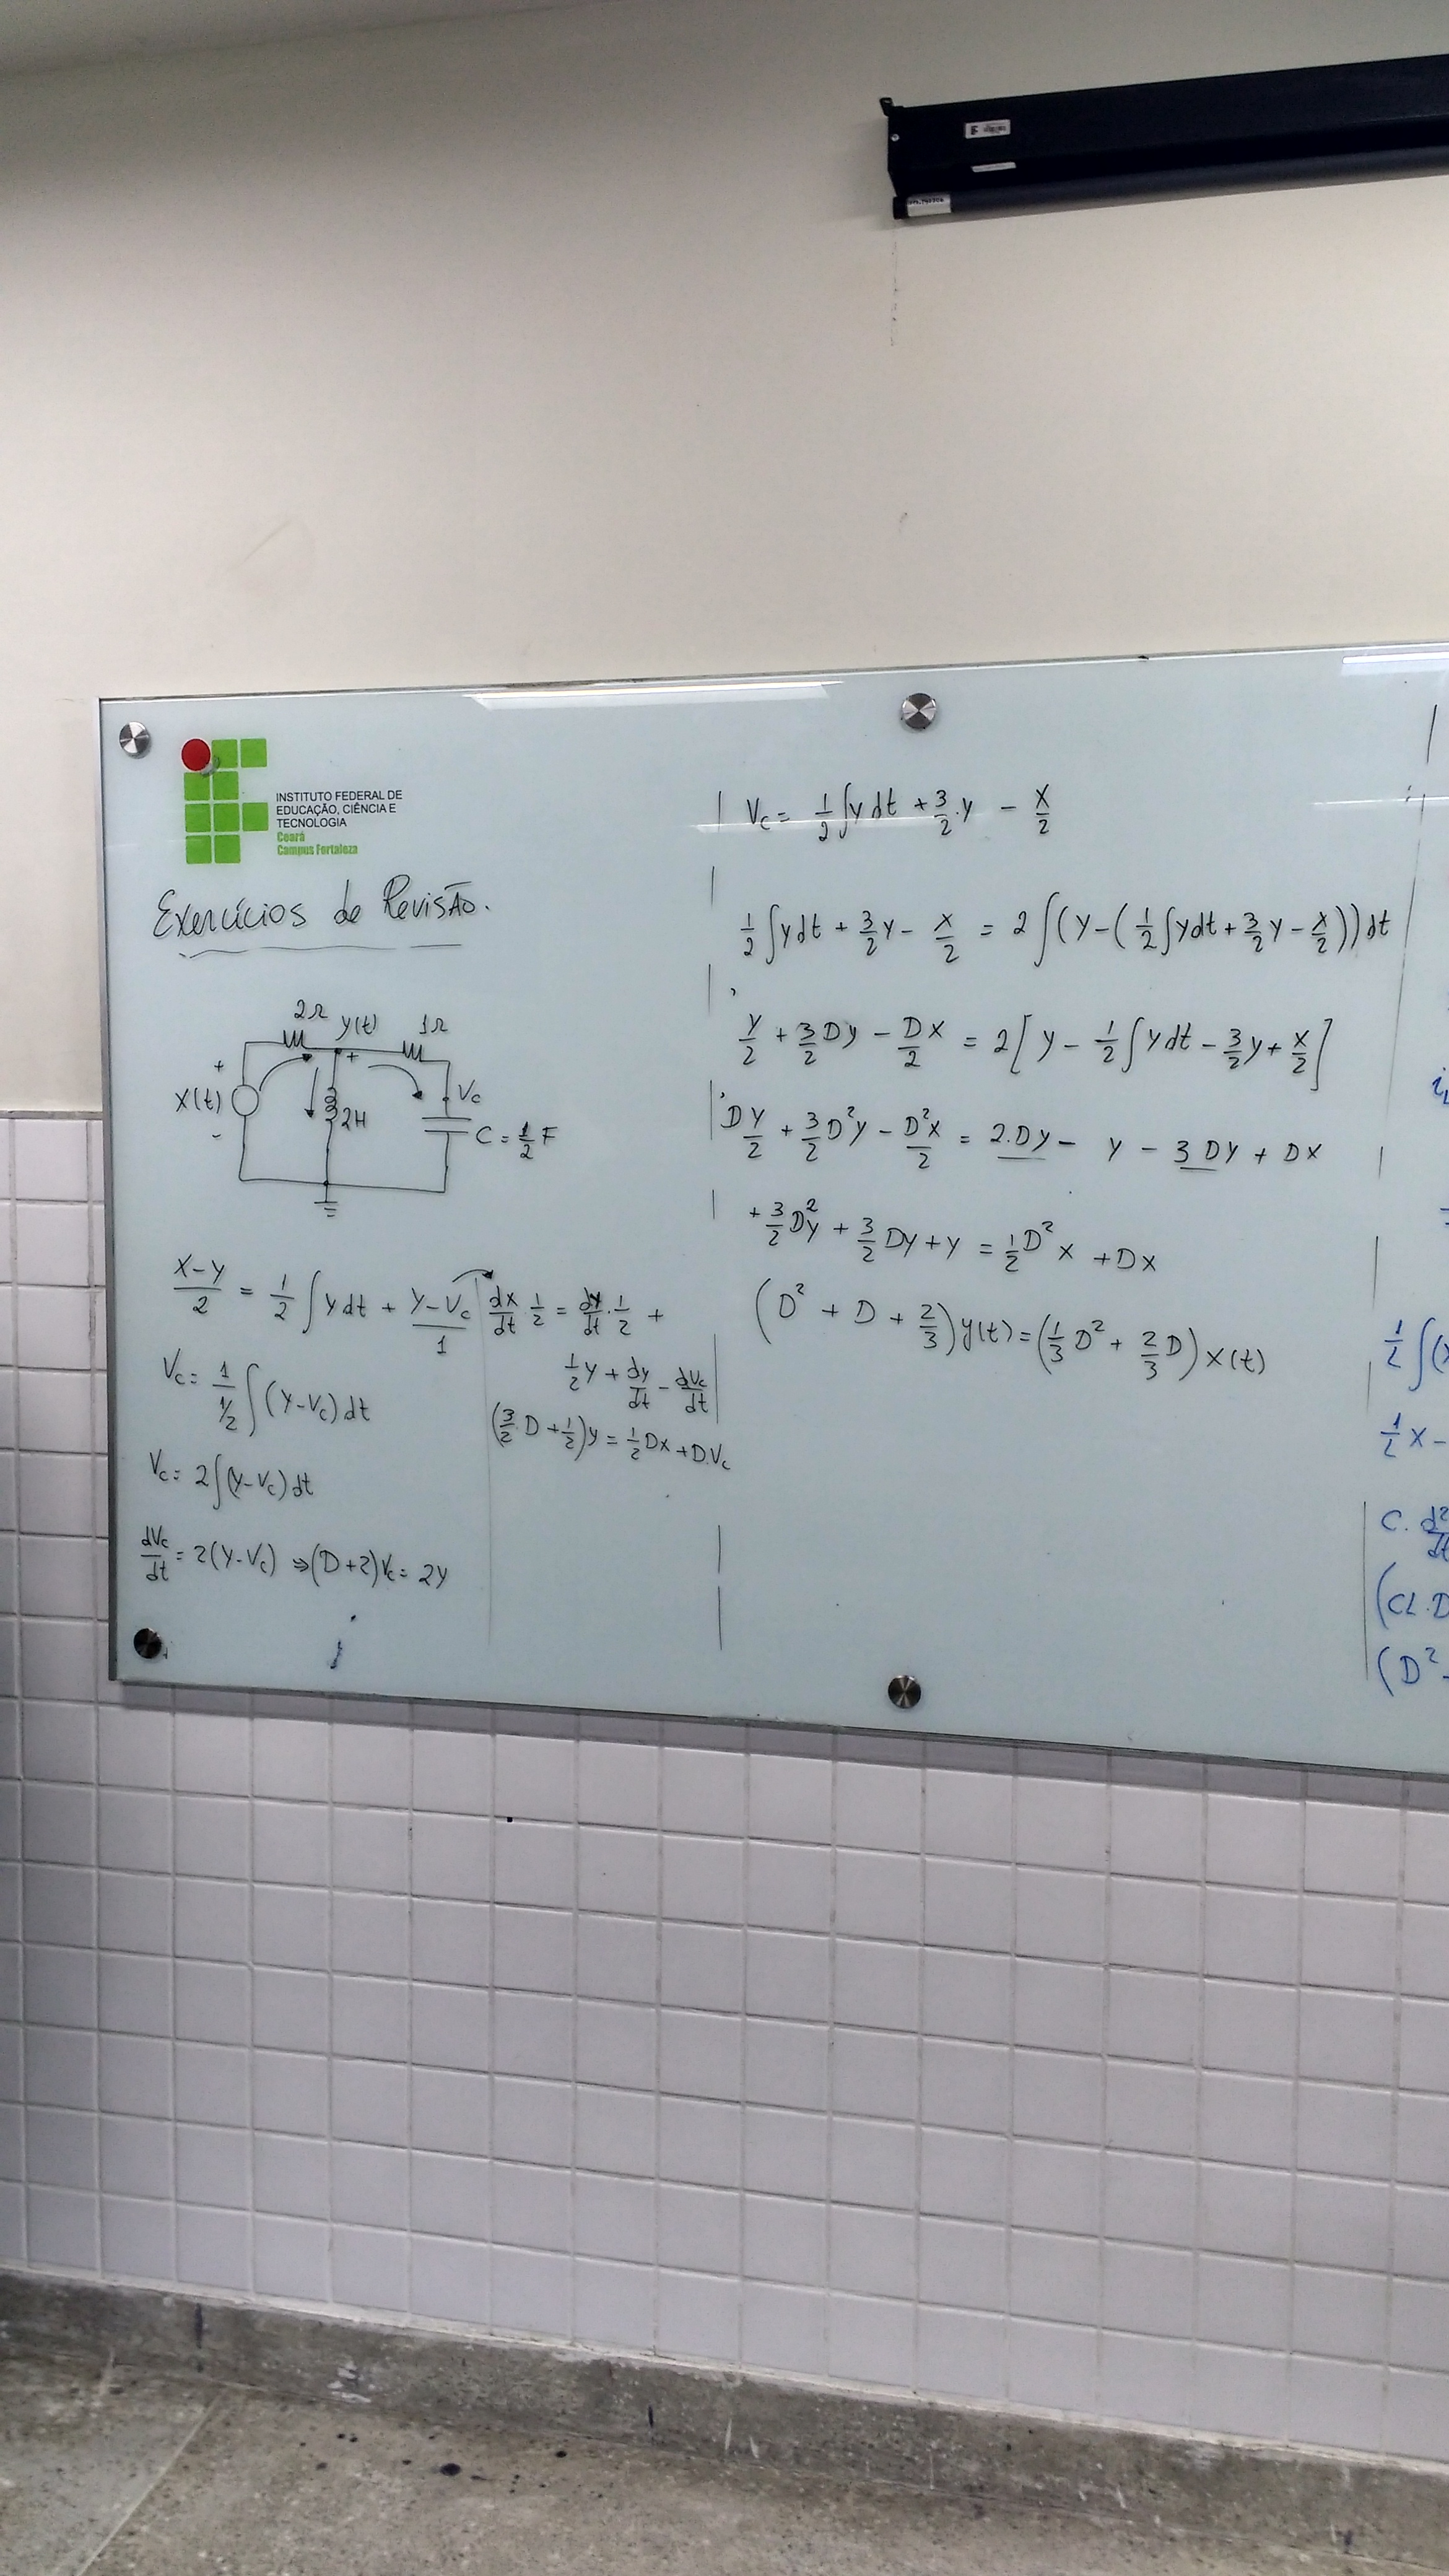 INSTITUTO FEDERAL DE
EDUCAÇÃO, CIÊNCIA E
TECNOLOGIA
Ceará
Campus Fortaleza
Exercícios de Revisão.
2Ω y(t) 1Ω
+ +
x(t) 2H Vc
- C = 1/2 F
(x-y)/2 = 1/2 ∫ y dt + (y-Vc)/1
Vc = 1/(1/2) ∫ (y-Vc) dt
Vc = 2∫(y-Vc) dt
dVc/dt = 2(y-Vc) ⇒ (D+2)Vc = 2y
dx/dt · 1/2 = dy/dt · 1/2 +
1/2 y + dy/dt - dVc/dt
(3/2 D + 1/2)y = 1/2 Dx + D.Vc
Vc = 1/2 ∫y dt + 3/2 · y - x/2
1/2 ∫y dt + 3/2 y - x/2 = 2 ∫(y-(1/2 ∫y dt + 3/2 y - x/2)) dt
y/2 + 3/2 Dy - D/2 x = 2[y - 1/2 ∫y dt - 3/2 y + x/2]
D y/2 + 3/2 D²y - D²x/2 = 2.Dy - y - 3 Dy + Dx
+ 3/2 D²y + 3/2 Dy + y = 1/2 D² x + Dx
(D² + D + 2/3) y(t) = (1/3 D² + 2/3 D) x(t)
1/2 ∫(
1/2 x -
C. d²/dt
(CL.D
(D² -